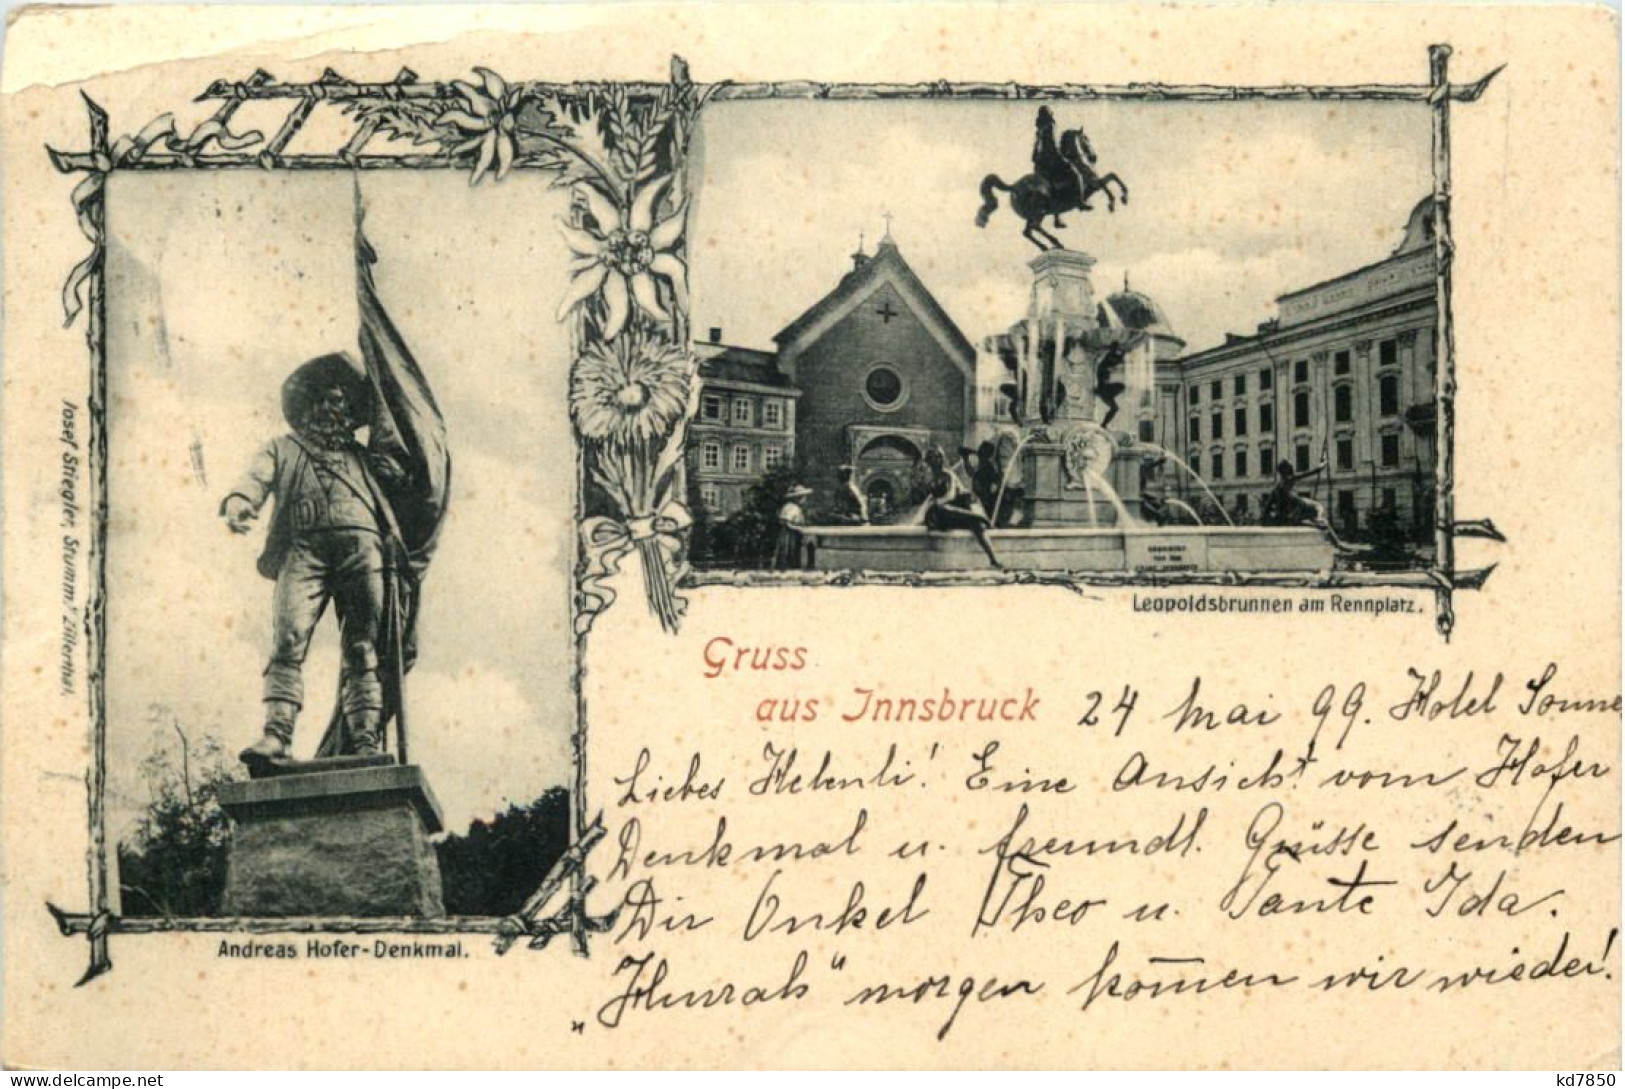 Josef Stiegler, Stumm/Zillerthal.
Andreas Hofer-Denkmal.
Leopoldsbrunnen am Rennplatz.
Gruss
aus Innsbruck
24 Mai 99. Hotel Sonne
Liebes Helenli! Eine Ansicht vom Hofer
Denkmal u. freundl. Grüsse senden
Dir Onkel Theo u. Tante Ida.
„Hurrah" morgen kom̅en wir wieder!
www.delcampe.net
kd7850